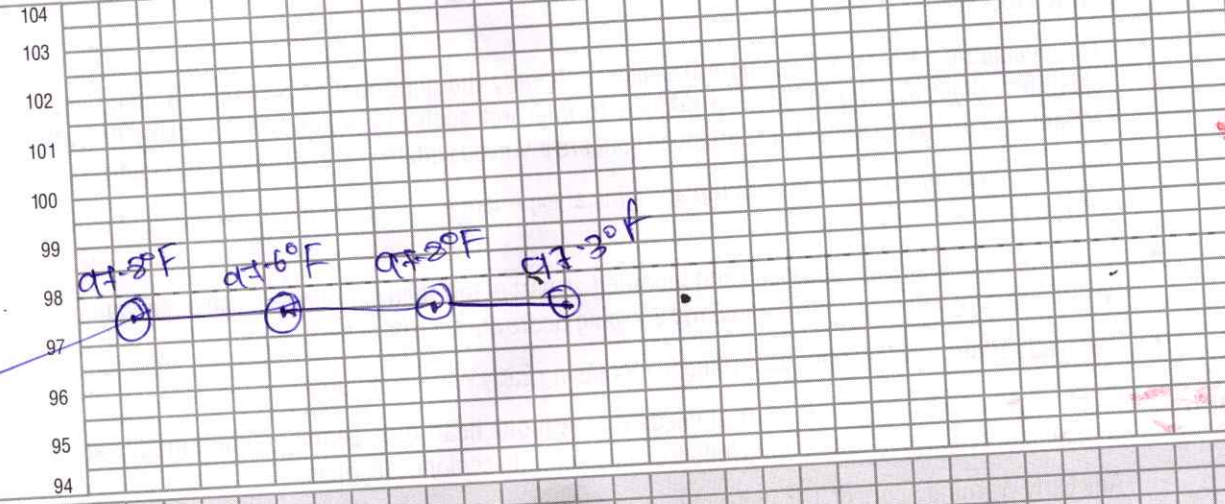 104
103
102
101
100
99
98
97
96
95
94
97.8°F
97.6°F
97.8°F
97.3°F